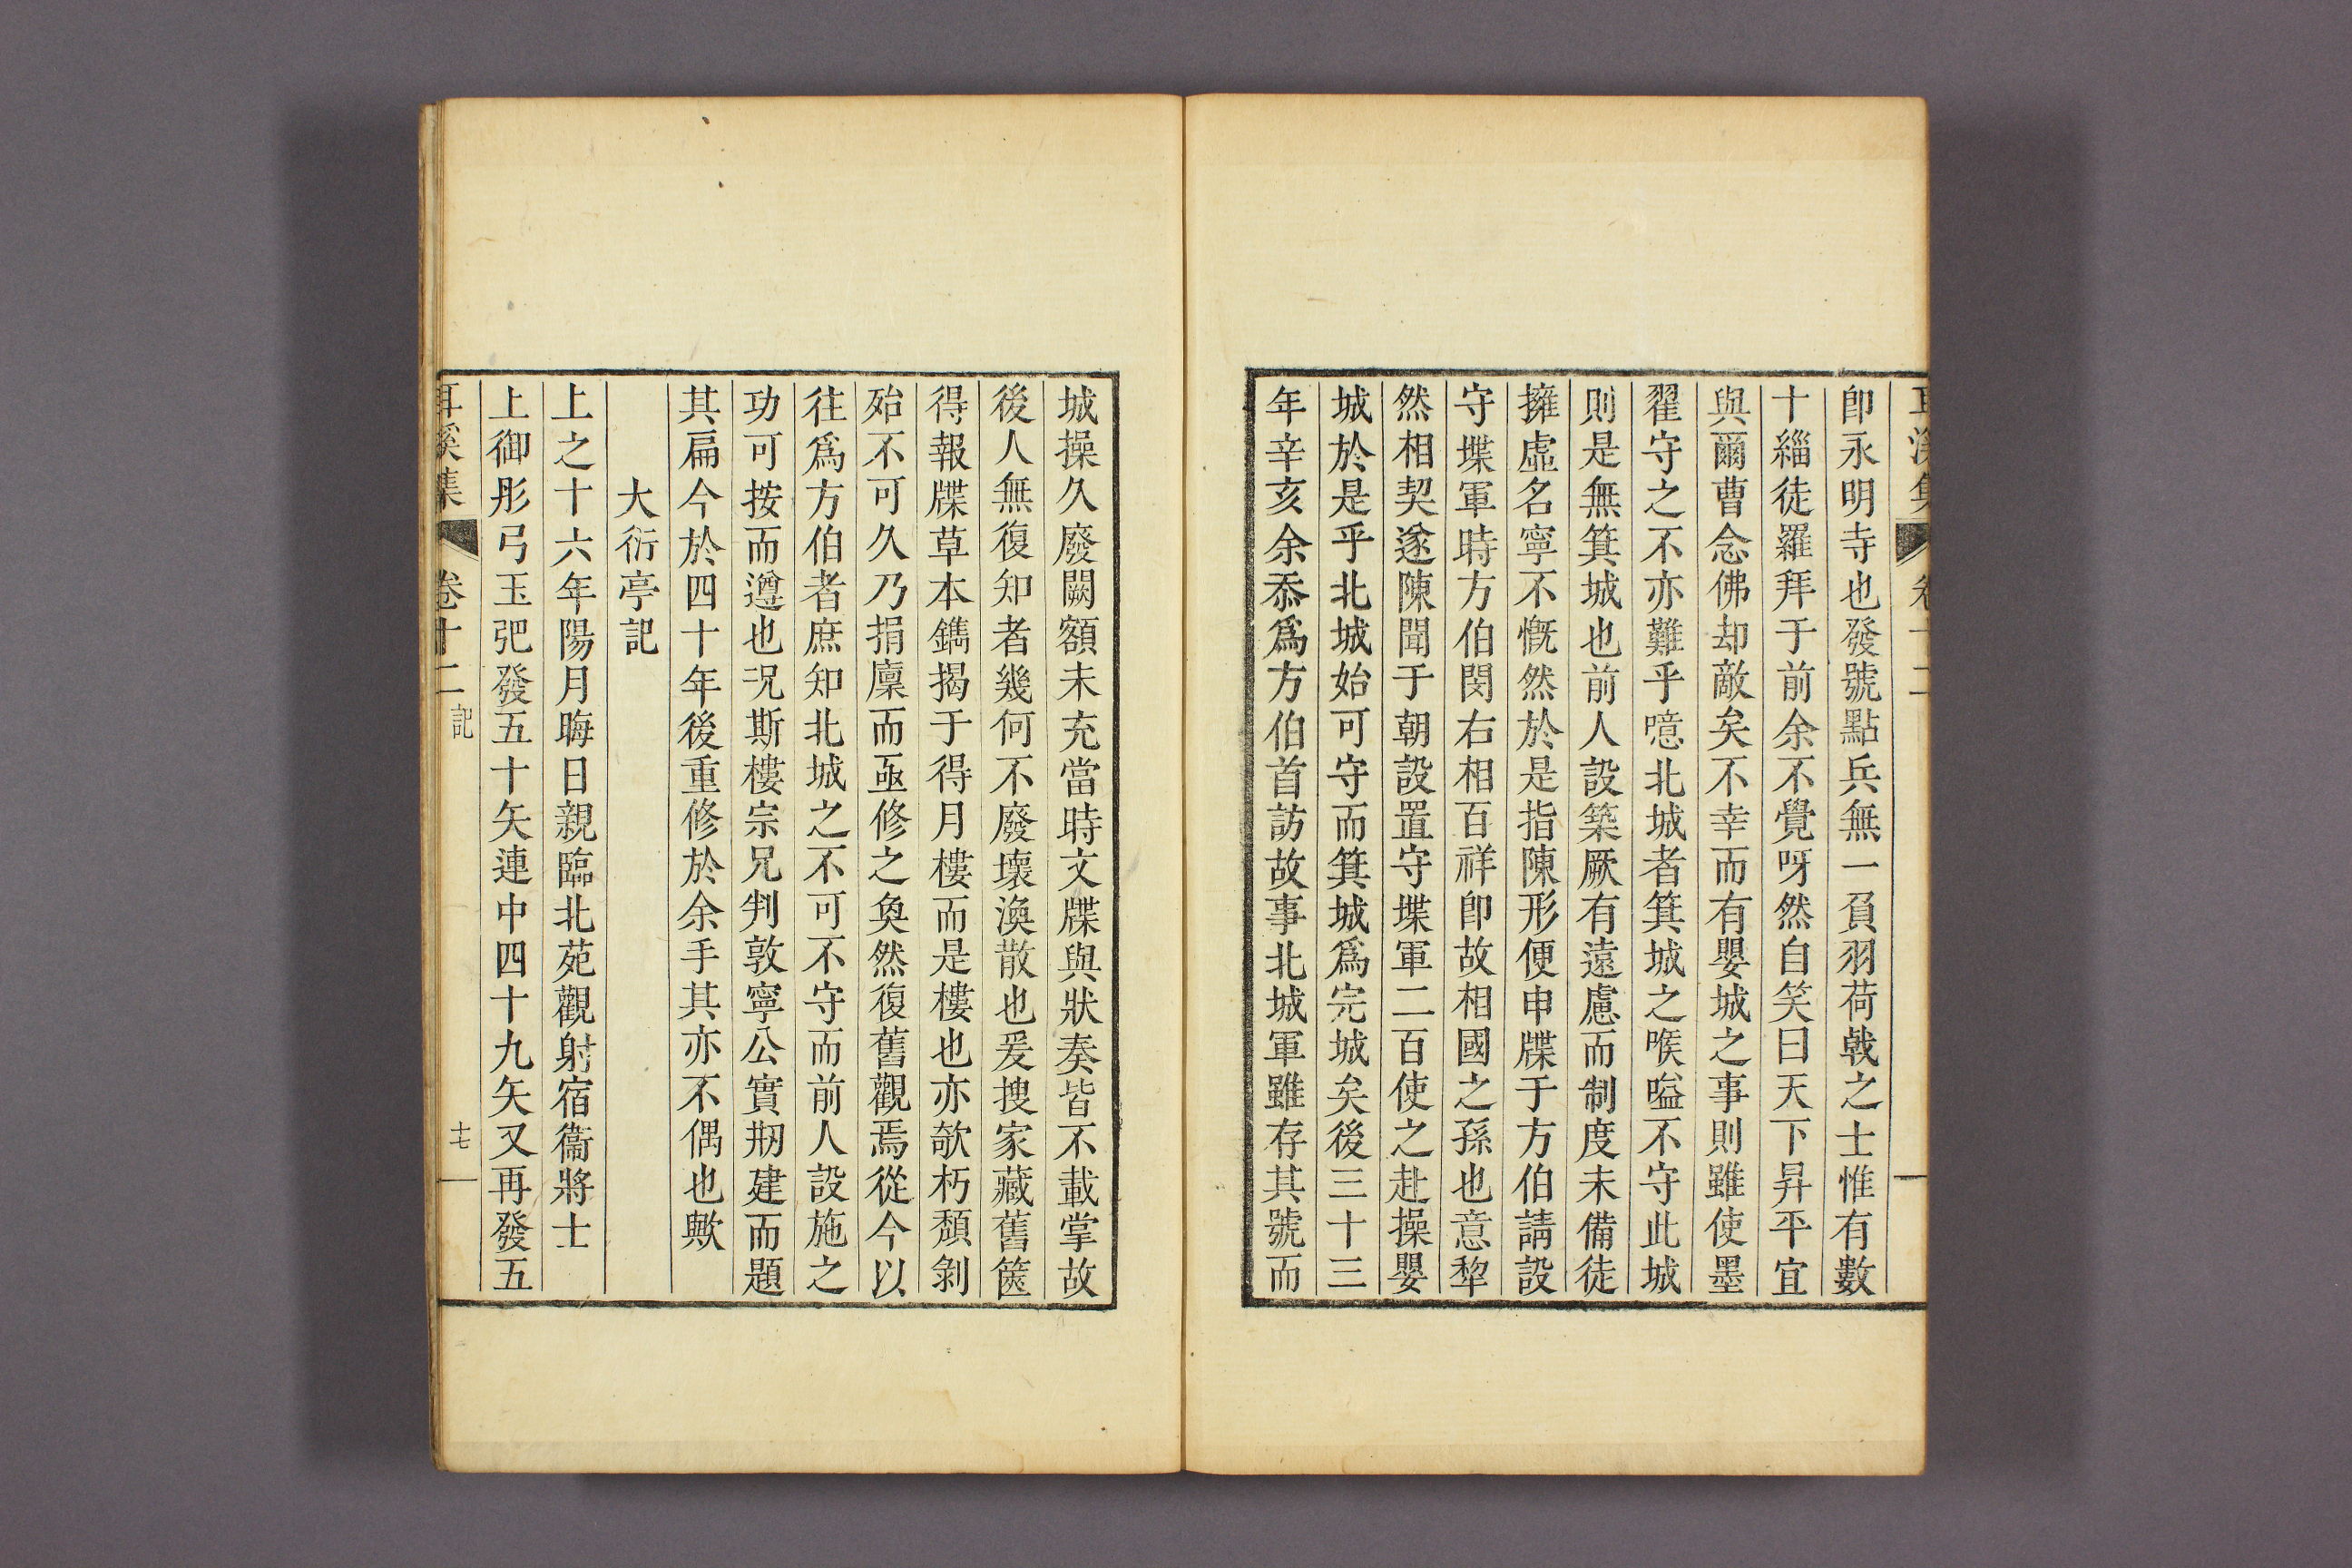 耳溪集 卷十二
卽永明寺也發號點兵無一負羽荷戟之士惟有數
十緇徒羅拜于前余不覺呀然自笑曰天下昇平宜
與爾曹念佛却敵矣不幸而有嬰城之事則雖使墨
翟守之不亦難乎噫北城者箕城之喉嗌不守此城
則是無箕城也前人設築厥有遠慮而制度未備徒
擁虛名寧不慨然於是指陳形便申牒于方伯請設
守堞軍時方伯閔右相百祥卽故相國之孫也意犂
然相契遂陳聞于朝設置守堞軍二百使之赴操嬰
城於是乎北城始可守而箕城爲完城矣後三十三
年辛亥余忝爲方伯首訪故事北城軍雖存其號而
城操久廢闕額未充當時文牒與狀奏皆不載掌故
後人無復知者幾何不廢壞渙散也爰搜家藏舊篋
得報牒草本鐫揭于得月樓而是樓也亦欹朽頹剝
殆不可久乃捐廩而亟修之奐然復舊觀焉從今以
往爲方伯者庶知北城之不可不守而前人設施之
功可按而遵也况斯樓宗兄判敦寧公實刱建而題
其扁今於四十年後重修於余手其亦不偶也歟
大衍亭記
上之十六年陽月晦日親臨北苑觀射宿衞將士
上御彤弓玉弝發五十矢連中四十九矢又再發五
耳溪集 卷十二 記 十七